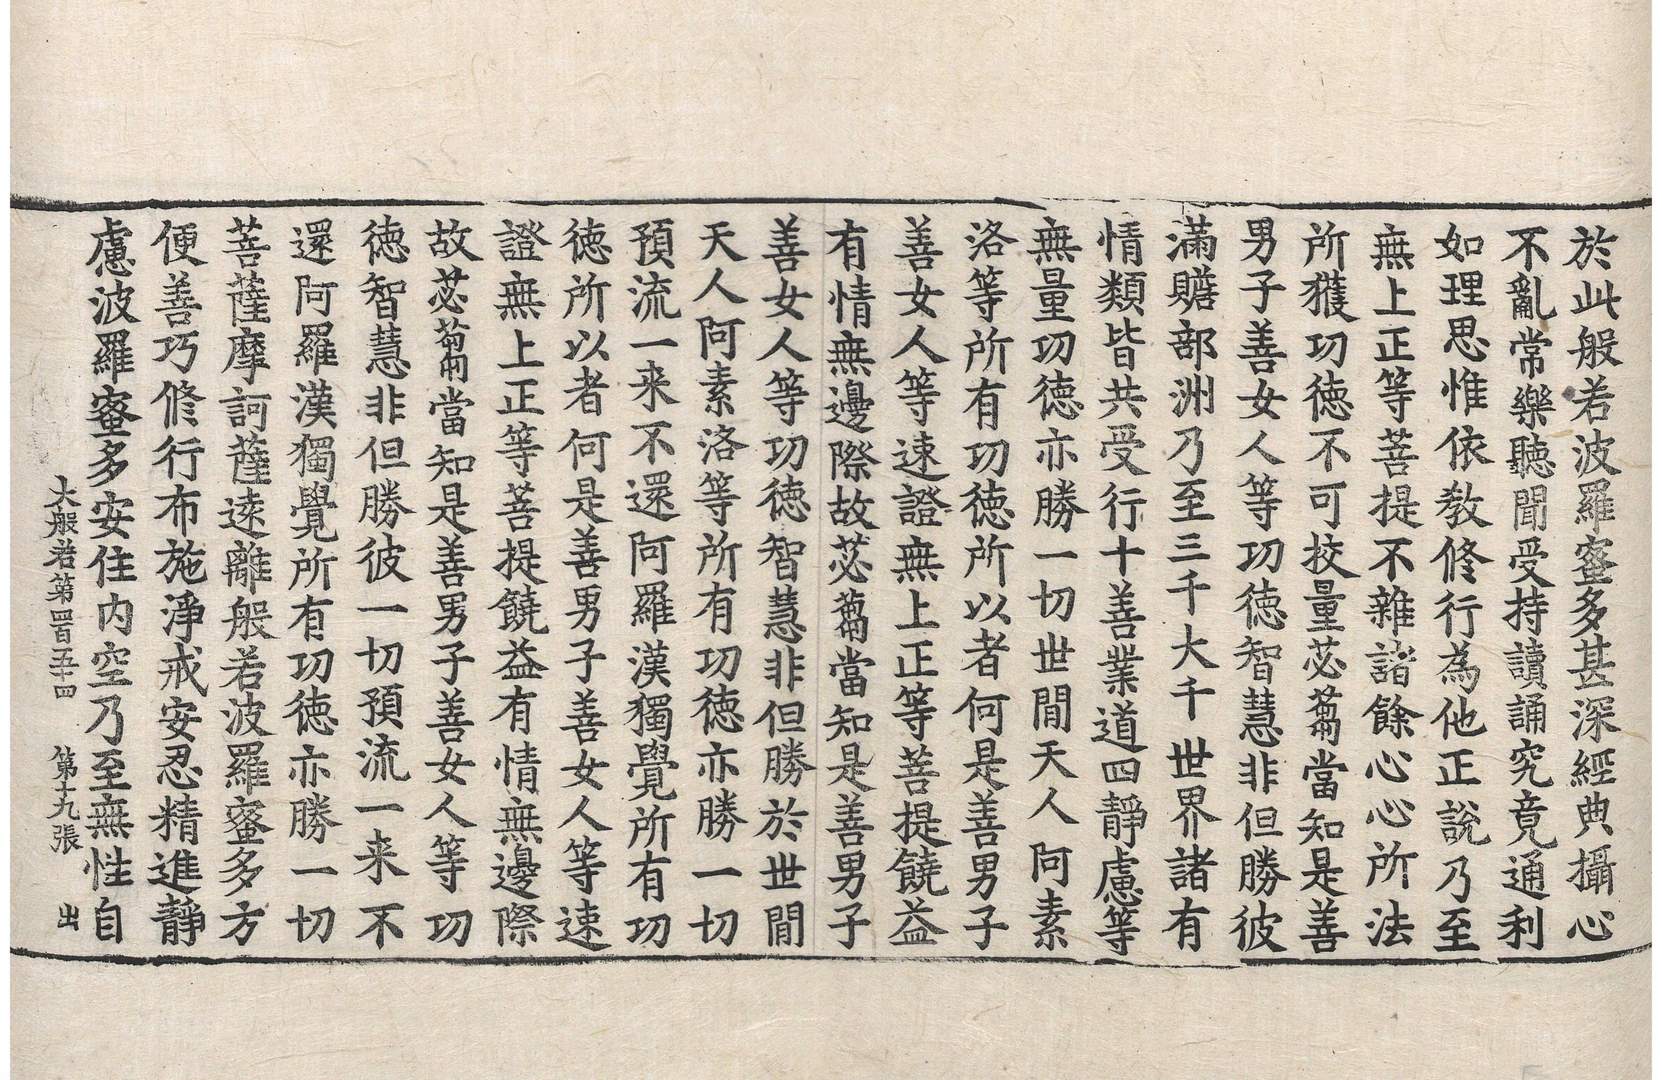 於此般若波羅蜜多甚深經典攝心
不亂常樂聽聞受持讀誦究竟通利
如理思惟依教修行為他正說乃至
無上正等菩提不雜諸餘心心所法
所獲功德不可挍量苾蒭當知是善
男子善女人等功德智慧非但勝彼
滿贍部洲乃至三千大千世界諸有
情類皆共受行十善業道四靜慮等
無量功德亦勝一切世間天人阿素
洛等所有功德所以者何是善男子
善女人等速證無上正等菩提饒益
有情無邊際故苾蒭當知是善男子
善女人等功德智慧非但勝於世間
天人阿素洛等所有功德亦勝一切
預流一来不還阿羅漢獨覺所有功
德所以者何是善男子善女人等速
證無上正等菩提饒益有情無邊際
故苾蒭當知是善男子善女人等功
德智慧非但勝彼一切預流一来不
還阿羅漢獨覺所有功德亦勝一切
菩薩摩訶薩遠離般若波羅蜜多方
便善巧修行布施淨戒安忍精進靜
慮波羅蜜多安住內空乃至無性自
大般若第四百五十四 第十九張 出